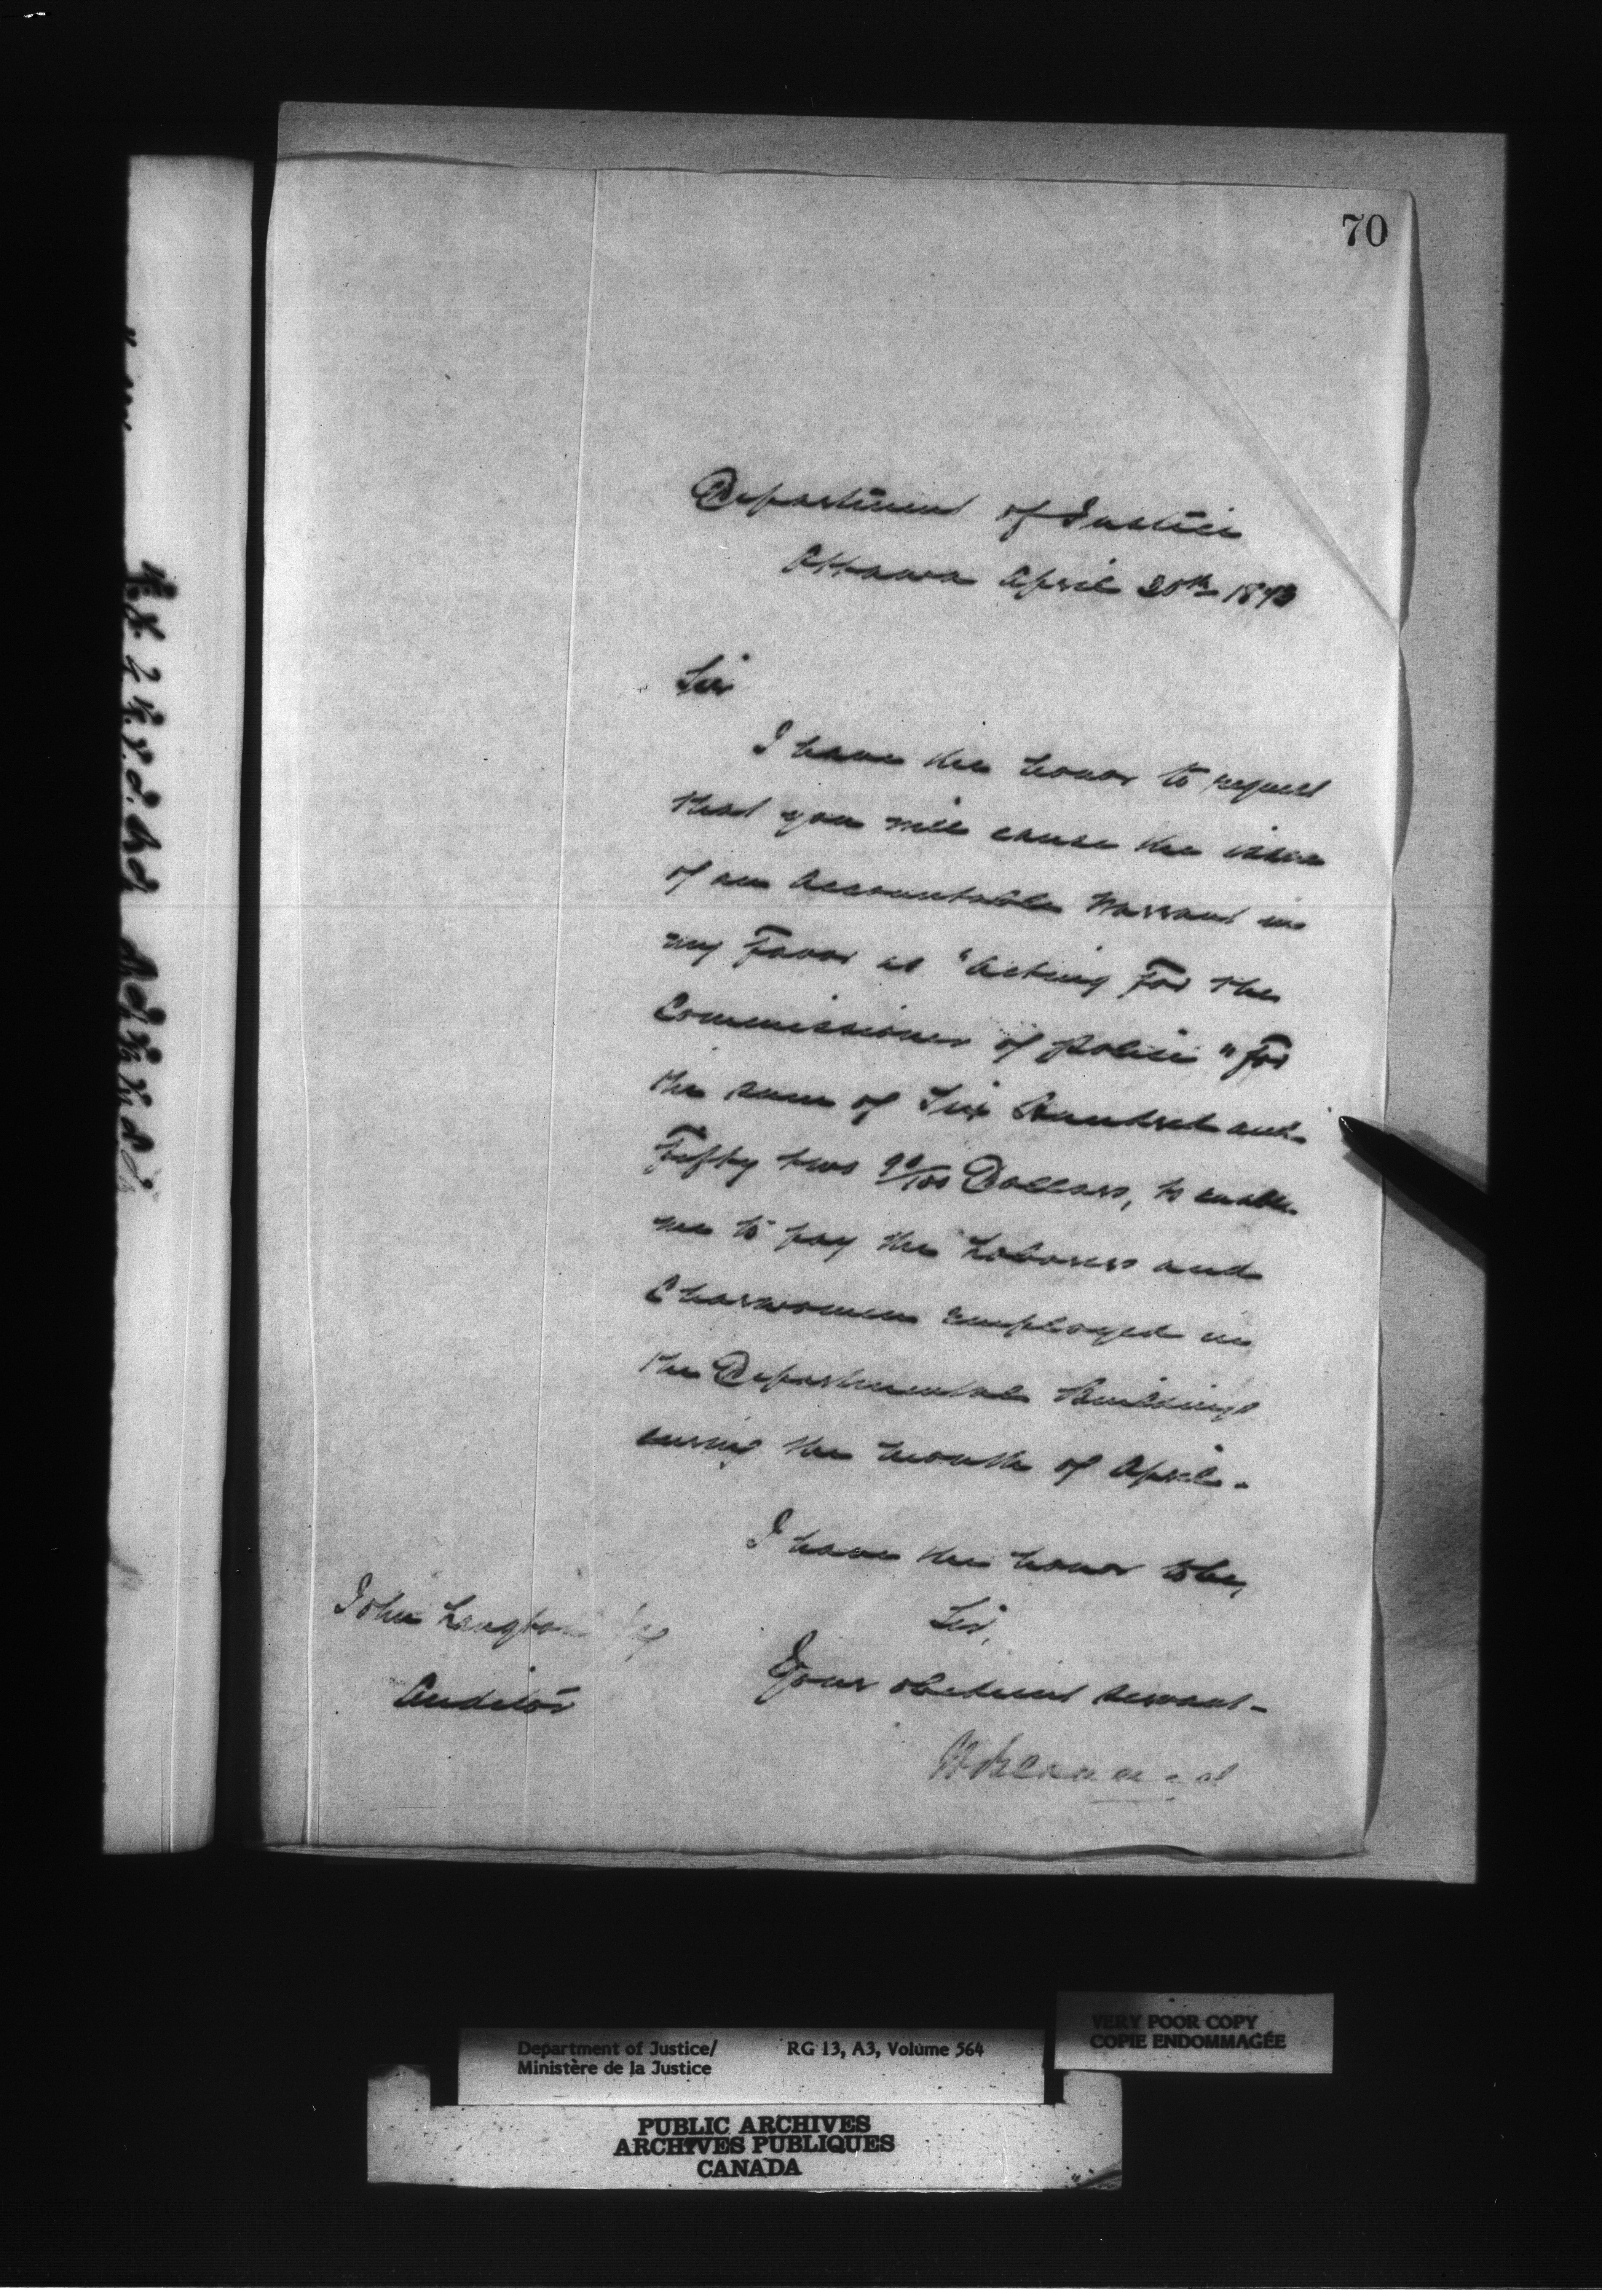 70
Department of Justice
Ottawa April 30th 1873
Sir
I have the honor to request
that you will cause the issue
of an Accountable Warrant in
my Favor as "Acting For the
Commissioner of Police" For
the sum of Six Hundred and
Fifty two 90/100 Dollars, to enable
me to pay the Laborers and
Charwomen employed in
the Departmental Buildings
during the month of April.
I have the honor to be,
Sir,
Your obedient servant
John Langton
Auditor
Department of Justice/ RG 13, A3, Volume 564
Ministère de la Justice
VERY POOR COPY
COPIE ENDOMMAGÉE
PUBLIC ARCHIVES
ARCHIVES PUBLIQUES
CANADA